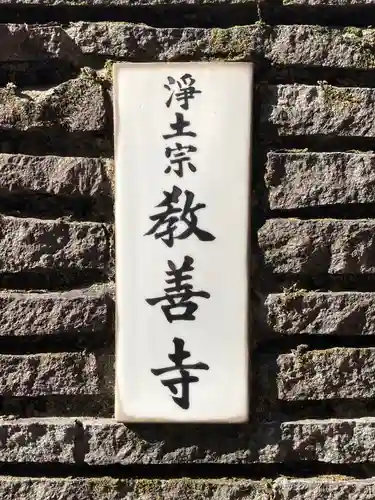 淨土宗
教善寺